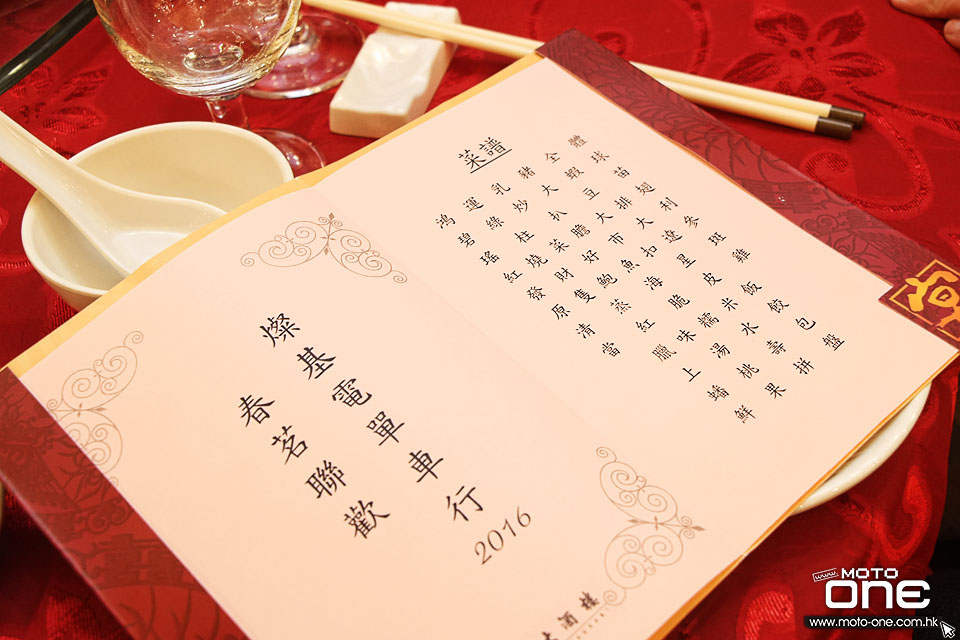 菜譜
鴻運乳豬全體
碧綠炒大蝦球
瑤柱扒豆苗
紅燒菜膽大排翅
發財好市大利
原隻鮑魚扣遼參
清蒸海星班
當紅脆皮雞
臘味糯米飯
上湯水餃
蟠桃壽包
鮮果拼盤
燦基電單車行
春茗聯歡
2016
酒樓
www
MOTO
ONE
www.moto-one.com.hk